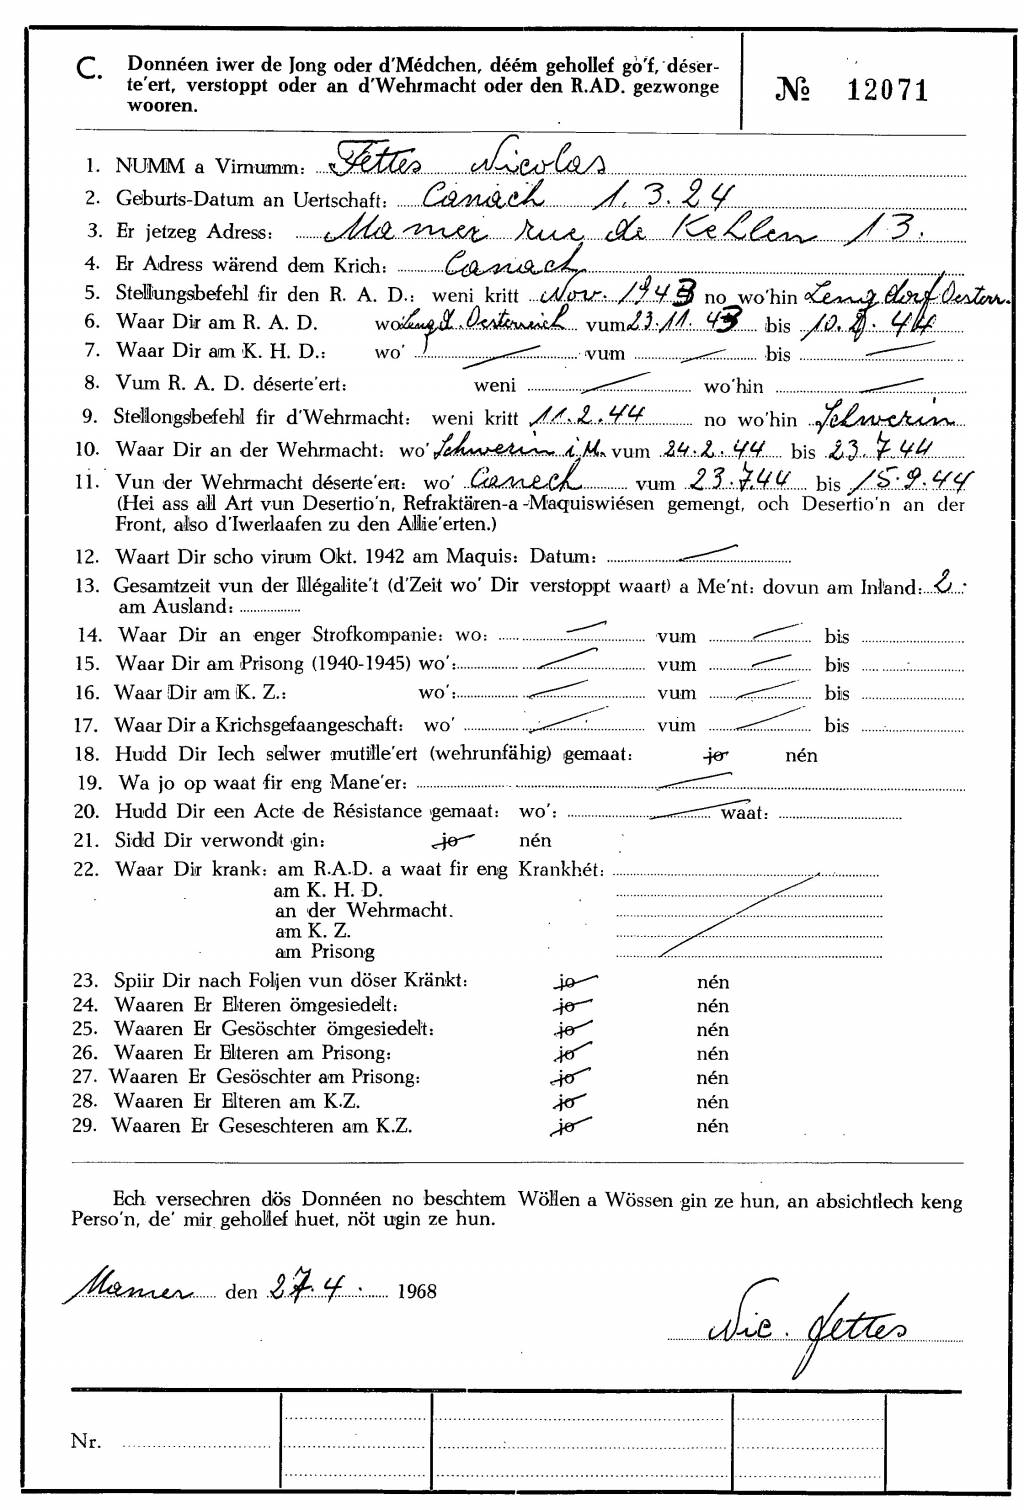 C. Donnéen iwer de Jong oder d'Médchen, déém gehollef go'f, déser-
te'ert, verstoppt oder an d'Wehrmacht oder den R.AD. gezwonge
wooren.
№ 12071
1. NUMM a Virnumm: Fettes Nicolas
2. Geburts-Datum an Uertschaft: Canach 1.3.24
3. Er jetzeg Adress: Mamer rue de Kehlen 13.
4. Er Adress wärend dem Krich: Canach
5. Stellungsbefehl fir den R. A. D.: weni kritt Nov. 1943 no wo'hin Lengdorf Oesterr.
6. Waar Dir am R. A. D. wo Lengd. Oesterreich vum 23.11.43 bis 10.2.44
7. Waar Dir am K. H. D.: wo' vum bis
8. Vum R. A. D. déserte'ert: weni wo'hin
9. Stellongsbefehl fir d'Wehrmacht: weni kritt 11.2.44 no wo'hin Schwerin
10. Waar Dir an der Wehrmacht: wo' Schwerin i.M. vum 24.2.44 bis 23.7.44
11. Vun der Wehrmacht déserte'ert: wo' Canech vum 23.7.44 bis 15.9.44
(Hei ass all Art vun Desertio'n, Refraktären-a-Maquiswiésen gemengt, och Desertio'n an der
Front, also d'Iwerlaafen zu den Allie'erten.)
12. Waart Dir scho virum Okt. 1942 am Maquis: Datum:
13. Gesamtzeit vun der Illégalite't (d'Zeit wo' Dir verstoppt waart) a Me'nt: dovun am Inland: 2
am Ausland:
14. Waar Dir an enger Strofkompanie: wo: vum bis
15. Waar Dir am Prisong (1940-1945) wo': vum bis
16. Waar Dir am K. Z.: wo': vum bis
17. Waar Dir a Krichsgefaangeschaft: wo' vum bis
18. Hudd Dir Iech selwer mutille'ert (wehrunfähig) gemaat: jo nén
19. Wa jo op waat fir eng Mane'er:
20. Hudd Dir een Acte de Résistance gemaat: wo': waat:
21. Sidd Dir verwondt gin: jo nén
22. Waar Dir krank: am R.A.D. a waat fir eng Krankhét:
am K. H. D.
an der Wehrmacht.
am K. Z.
am Prisong
23. Spiir Dir nach Foljen vun döser Kränkt: jo nén
24. Waaren Er Elteren ömgesiedelt: jo nén
25. Waaren Er Gesöschter ömgesiedelt: jo nén
26. Waaren Er Elteren am Prisong: jo nén
27. Waaren Er Gesöschter am Prisong: jo nén
28. Waaren Er Elteren am K.Z. jo nén
29. Waaren Er Geseschteren am K.Z. jo nén
Ech versechren dös Donnéen no beschtem Wöllen a Wössen gin ze hun, an absichtlech keng
Perso'n, de' mir gehollef huet, nöt ugin ze hun.
Mamer den 27.4. 1968
Nic. Fettes
Nr.